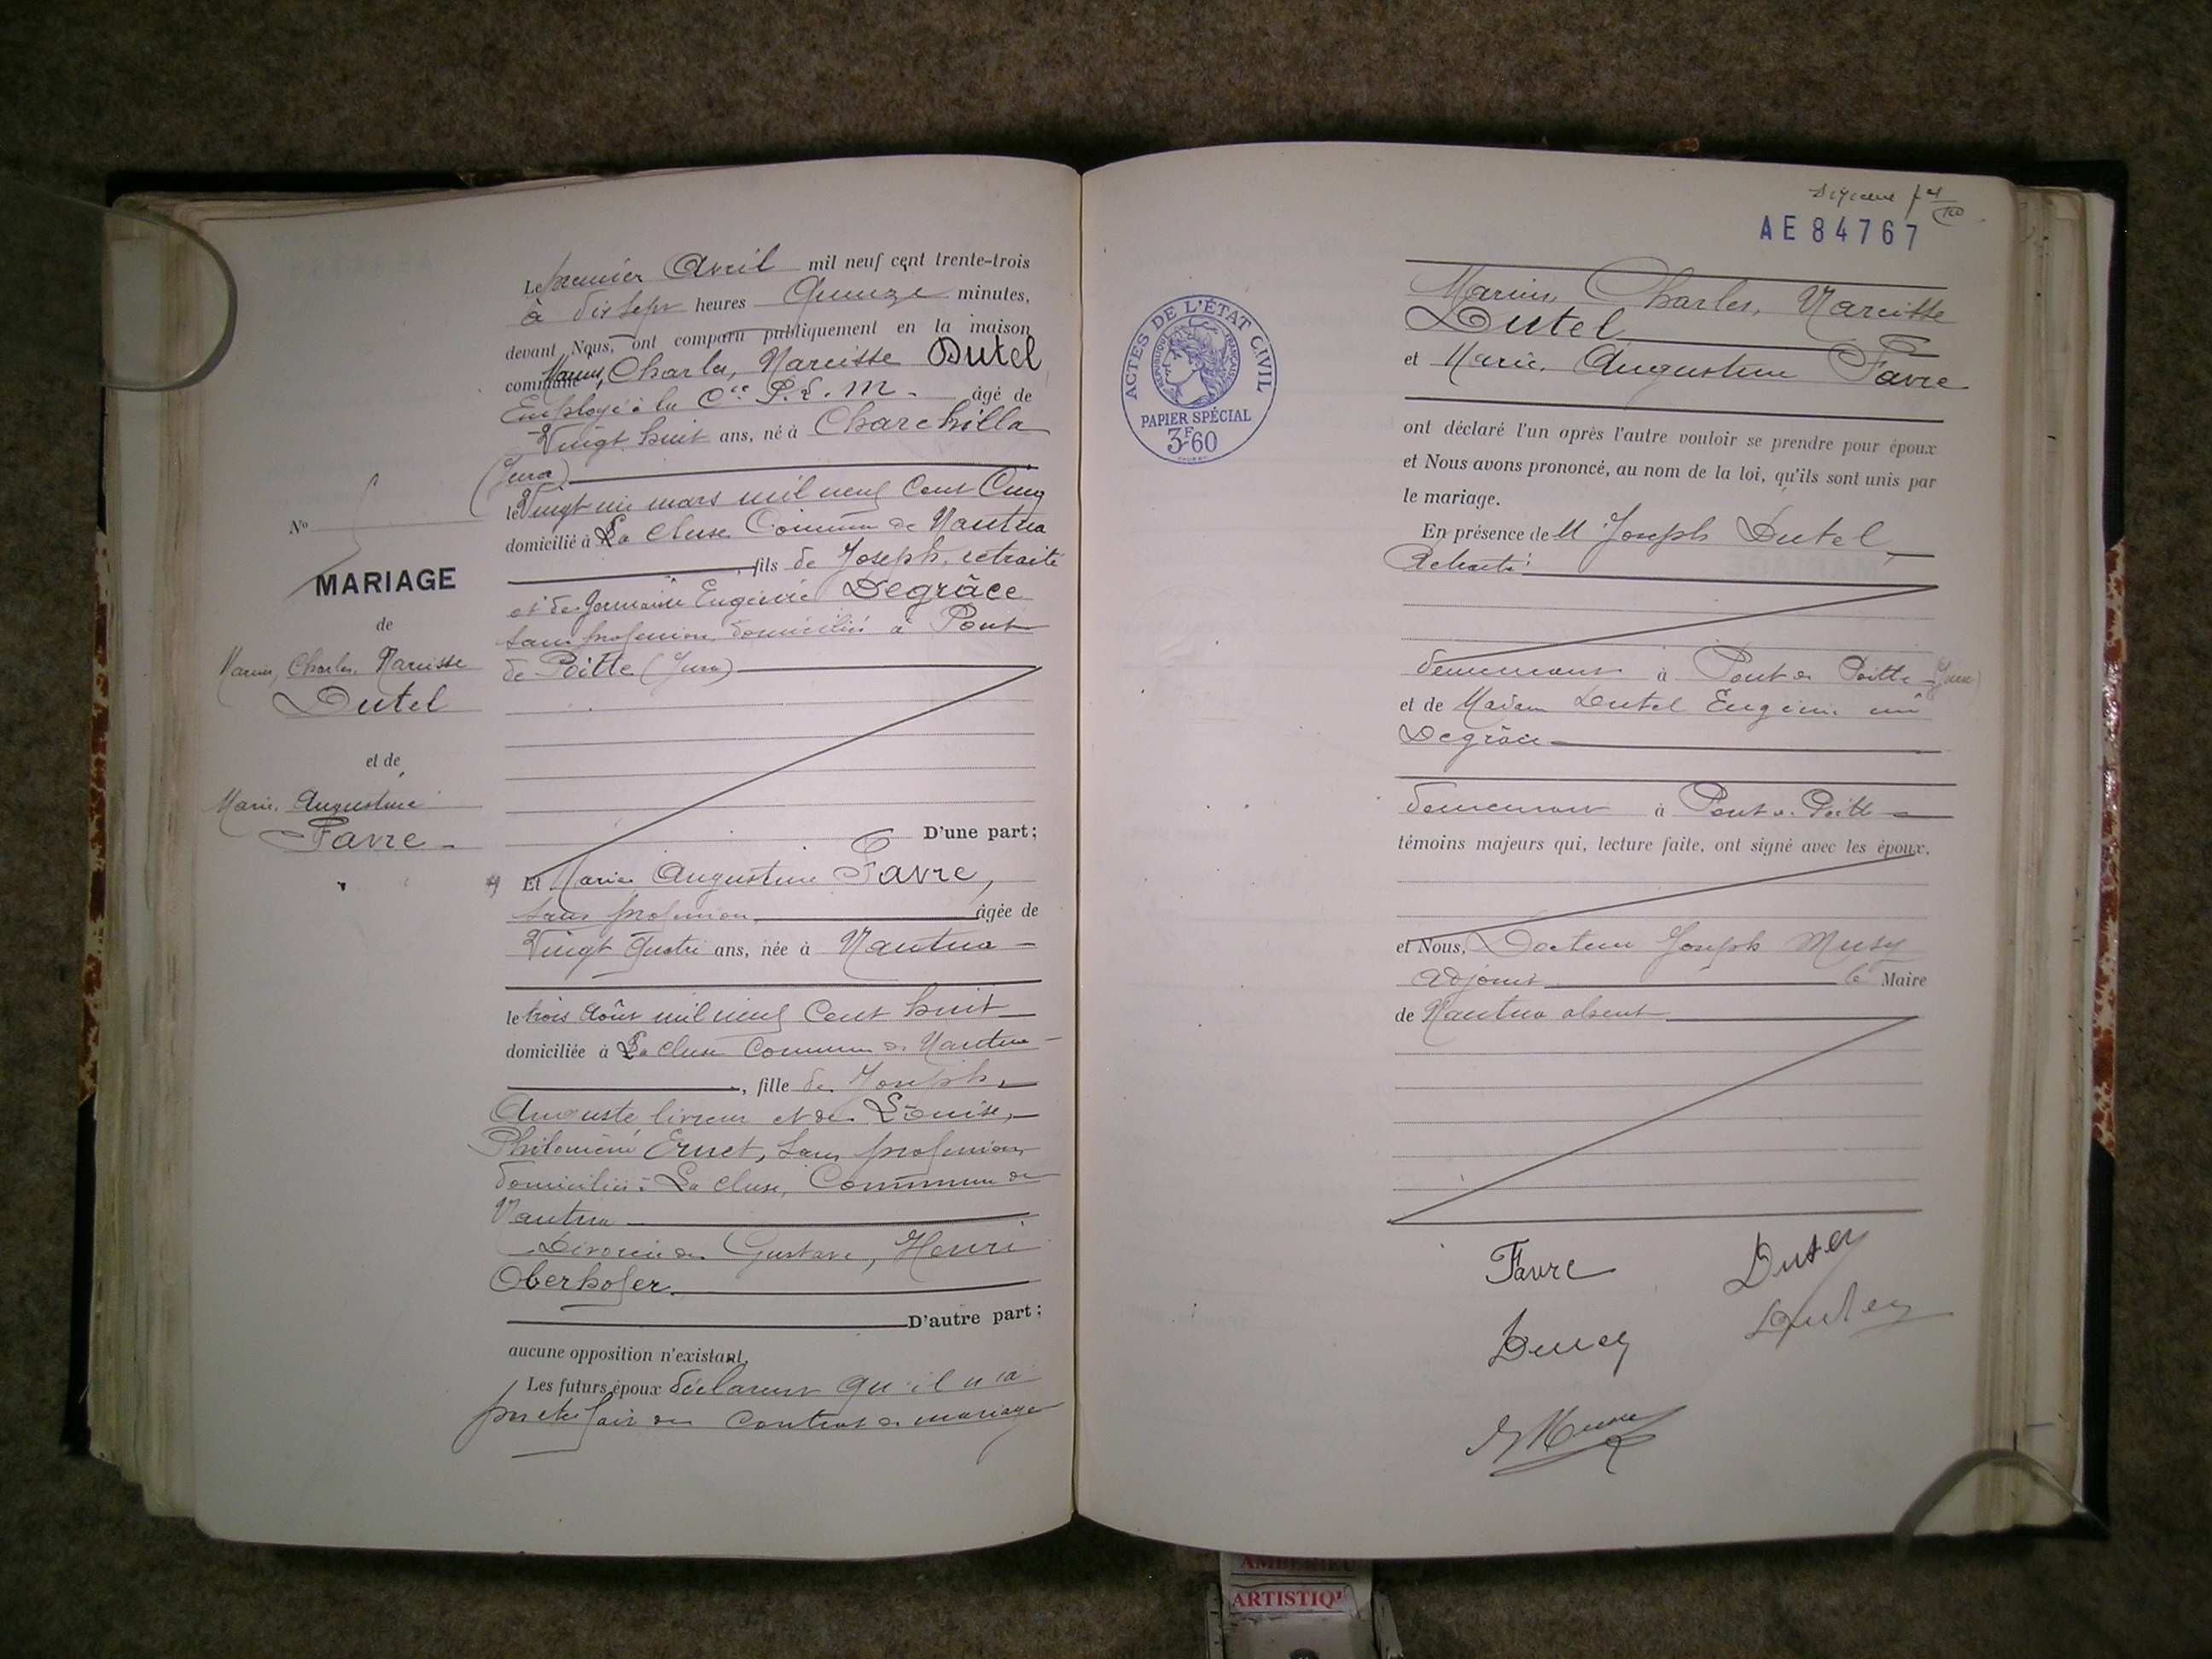 Le premier Avril mil neuf cent trente-trois
à dix sept heures Quinze minutes,
devant Nous, ont comparu publiquement en la maison
commune Marius, Charles, Narcisse Dutel
Employé à la Cie P.L.M. âgé de
Vingt huit ans, né à Charchilla
(Jura)
le Vingt un mars mil neuf Cent Cinq
domicilié à La Cluse Commune de Nantua
fils de Joseph, retraité
et de Germaine Eugénie Degrâce
sans profession, domiciliés à Pont
de Poitte (Jura)
D'une part;
Et Marie Augustine Favre,
sans profession, âgée de
Vingt Quatre ans, née à Nantua
le trois Août mil neuf Cent huit
domiciliée à La Cluse Commune de Nantua
, fille de Joseph,
Auguste livreur et de Louise,
Philomène Ernet, sans profession
domiciliés à La Cluse, Commune de
Nantua
Divorcée de Gustave, Henri
Oberhofer.
D'autre part;
aucune opposition n'existant.
Les futurs époux déclarent qu'il n'a
pas été fait de contrat de mariage
N°
MARIAGE
de
Marius, Charles, Narcisse
Dutel
et de
Marie, Augustine
Favre
AE84767
ACTES DE L'ÉTAT CIVIL
RÉPUBLIQUE FRANÇAISE
PAPIER SPÉCIAL
3F60
Marius, Charles, Narcisse
Dutel
et Marie, Augustine Favre
ont déclaré l'un après l'autre vouloir se prendre pour époux
et Nous avons prononcé, au nom de la loi, qu'ils sont unis par
le mariage.
En présence de M Joseph Dutel,
Retraité
demeurant à Pont de Poitte (Jura)
et de Madame Dutel Eugénie née
Degrâce
demeurant à Pont de Poitte
témoins majeurs qui, lecture faite, ont signé avec les époux.
et Nous, Docteur Joseph Musy
adjoint le Maire
de Nantua absent
Favre Dutel
Dutel
AMBERIEU
ARTISTIQU